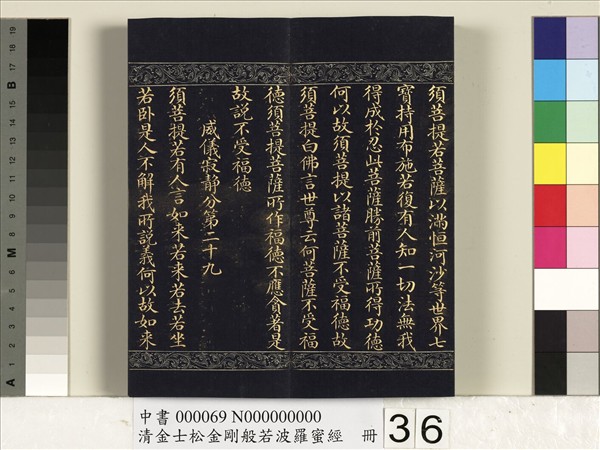 須菩提若菩薩以滿恒河沙等世界七
寶持用布施若復有人知一切法無我
得成於忍此菩薩勝前菩薩所得功德
何以故須菩提以諸菩薩不受福德故
須菩提白佛言世尊云何菩薩不受福
德須菩提菩薩所作福德不應貪著是
故說不受福德
威儀寂靜分第二十九
須菩提若有人言如來若来若去若坐
若卧是人不解我所說義何以故如來
中書 000069 N000000000
清金士松金剛般若波羅蜜經 冊
36
A 1 2 3 4 5 6 M 8 9 10 11 12 13 14 15 B 17 18 19